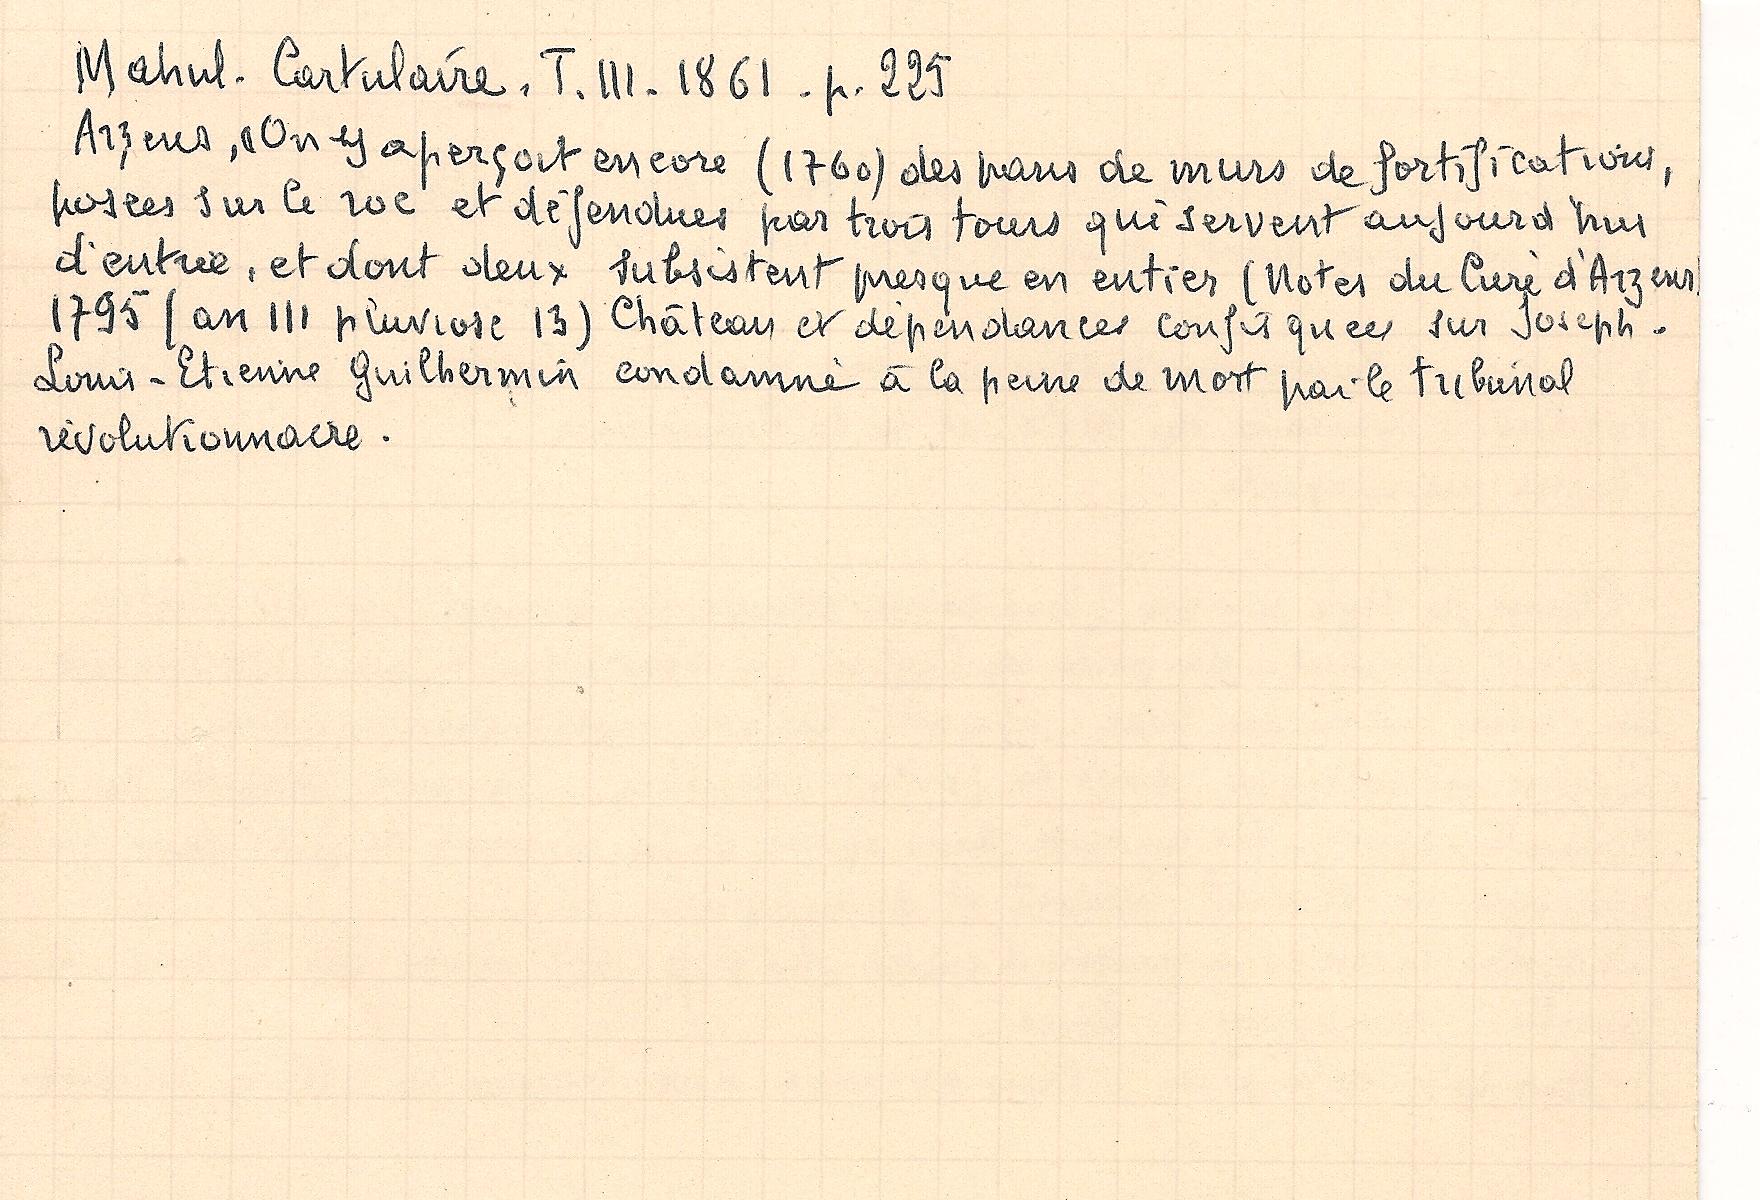 Mahul. Cartulaire. T. III. 1861. p. 225
Arzens, "On y aperçoit encore (1760) des pans de murs de fortifications,
posées sur le roc et défendues par trois tours qui servent aujourd'hui
d'entrée, et dont deux subsistent presque en entier (Notes du Curé d'Arzens)
1795 (an III pluviose 13) Château et dépendances confisquées sur Joseph-
Louis-Etienne Guilhermin condamné à la peine de mort par le tribunal
révolutionnaire.